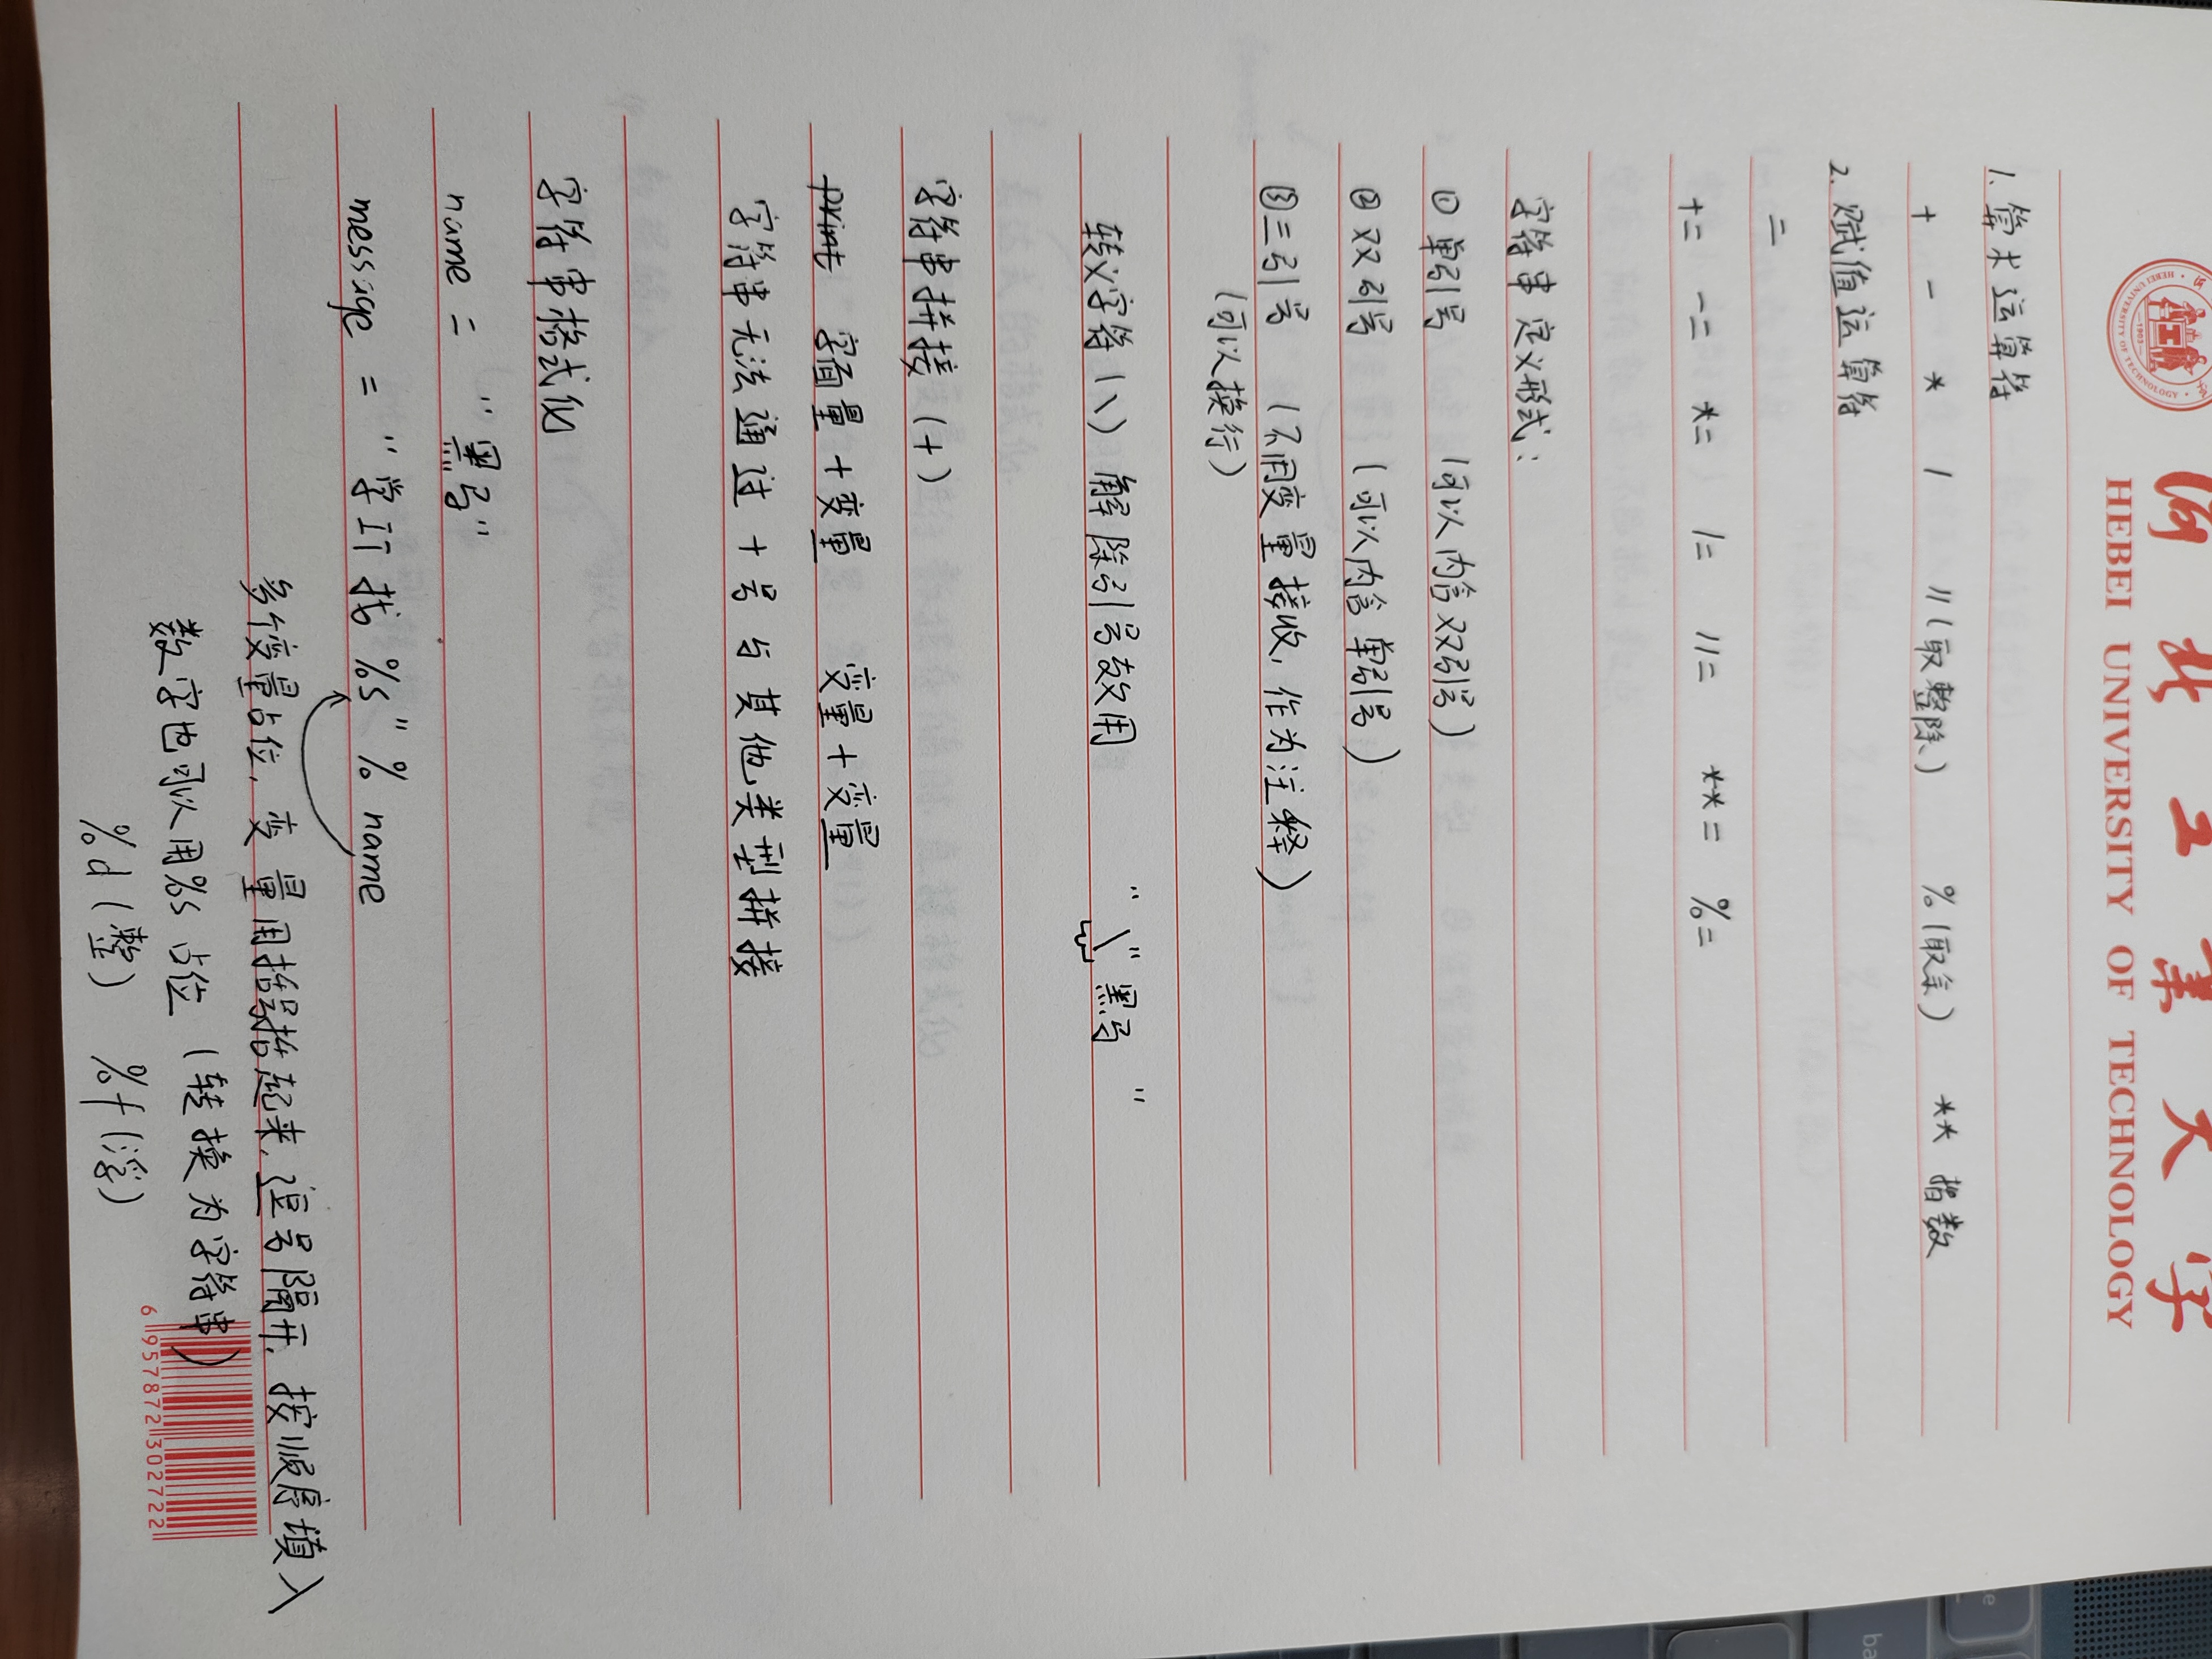 河北工业大学
HEBEI UNIVERSITY OF TECHNOLOGY
1. 算术运算符
+ - * / //(取整除) %(取余) ** 指数
2. 赋值运算符
=
+= -= *= /= //= **= %=
字符串定义形式:
① 单引号 (可以内含双引号)
② 双引号 (可以内含单引号)
③ 三引号 (不用变量接收, 作为注释)
(可以换行)
转义字符(\) 解除引号效用 " \" 黑马 "
字符串拼接 (+)
print 字面量 + 变量 变量 + 变量
字符串无法通过 + 号与其他类型拼接
字符串格式化
name = "黑马"
message = "学IT找 %s" % name
多个变量占位, 变量用括号括起来, 逗号隔开, 按顺序填入
数字也可以用%s占位 (转换为字符串)
%d (整) %f (浮)
6 957872 302722